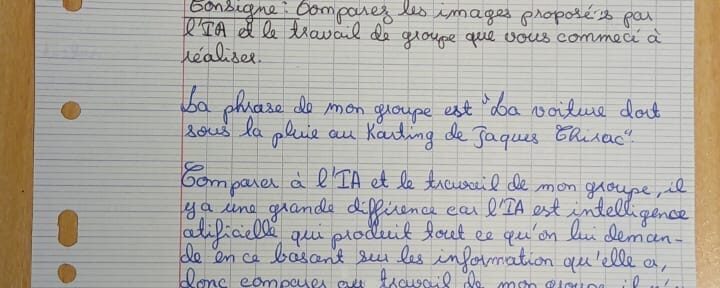 Consigne : Comparez les images proposé's par
l'IA et le travail de groupe que vous commecé à
réaliser.
La phrase de mon groupe est "La voiture dort
sous la pluie au Karting de Jaques Chirac".
Comparer à l'IA et le travail de mon groupe, il
y a une grande différence car l'IA est intelligence
atificielle qui produit tout ce qu'on lui deman-
de en ce basant sur les information qu'elle a,
donc comparer au travail de mon groupe il n'y